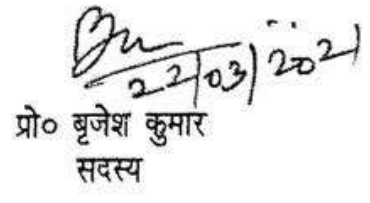 22/03/2021
प्रो० बृजेश कुमार
सदस्य